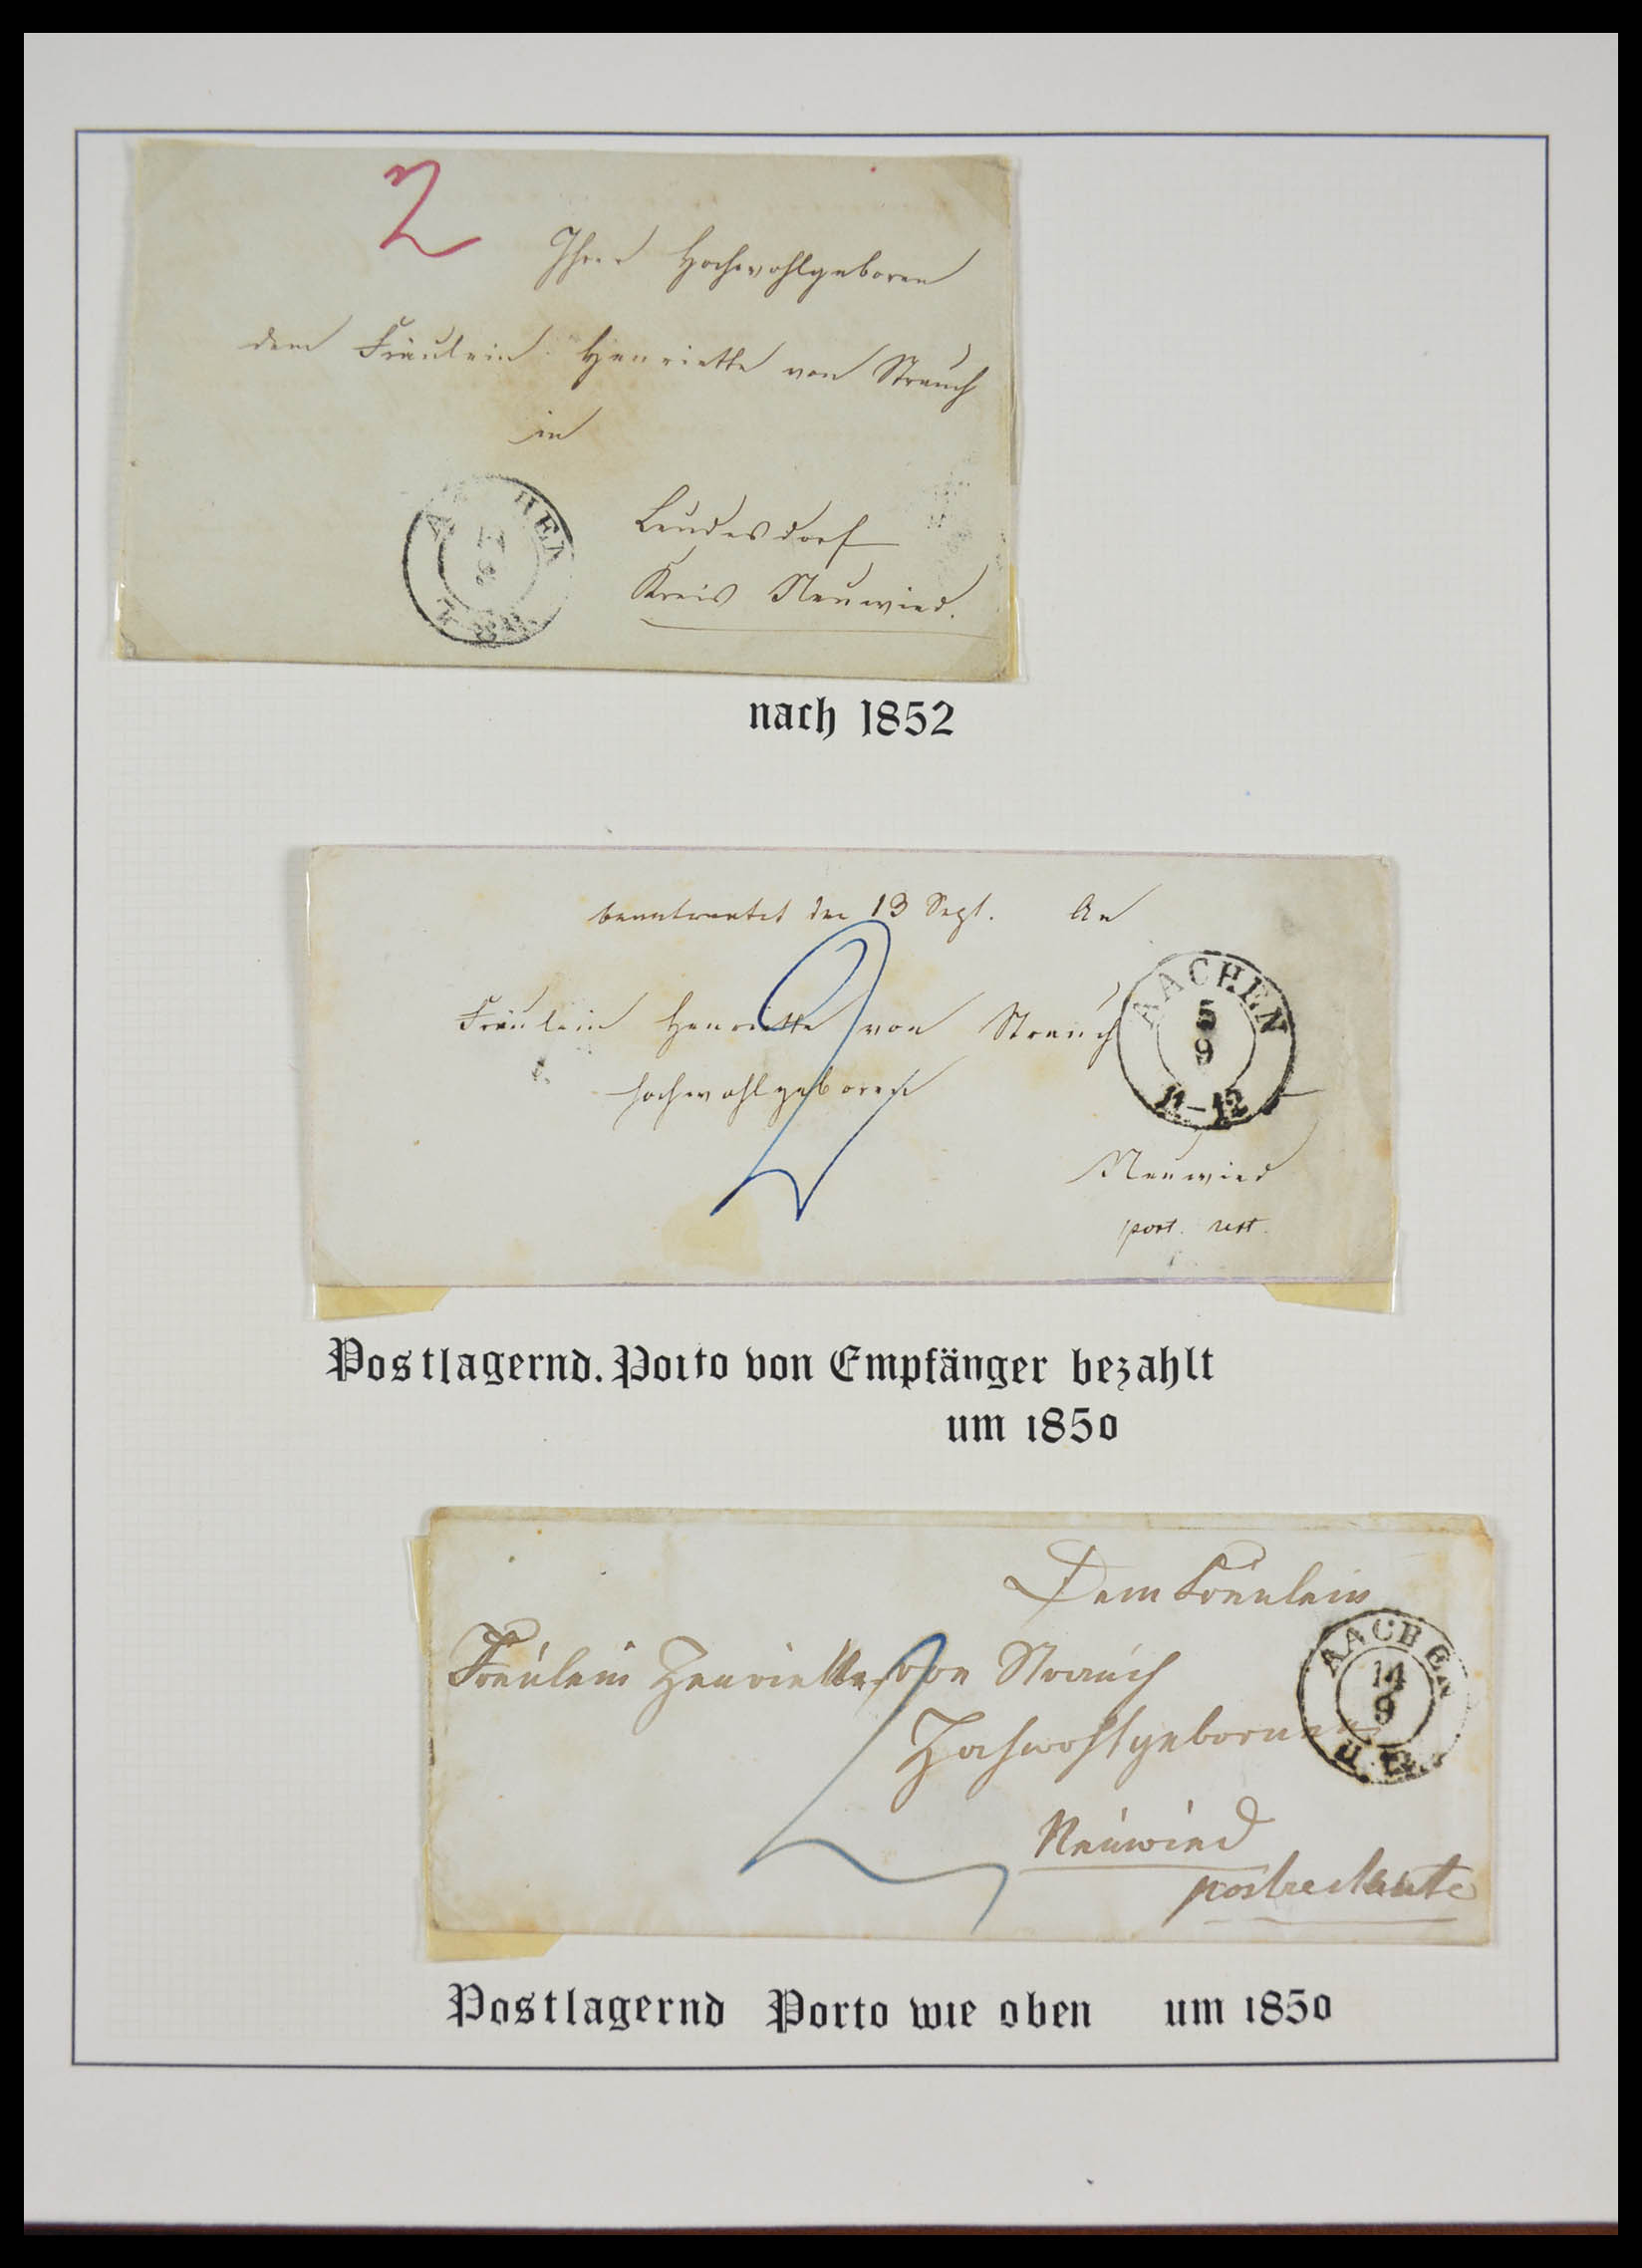 2
Ihrer Hochwohlgeboren
dem Fräulein Henriette von Strauch
in
Leudesdorf
Kreis Neuwied.
nach 1852
beantwortet den 13 Sept. An
Fräulein Henriette von Strauch
hochwohlgeboren
AACHEN
5
9
11-12
2
Neuwied
post. rest.
Postlagernd. Porto von Empfänger bezahlt
um 1850
Dem Fräulein
Fräulein Henriette von Strauch
Hochwohlgeboren
AACHEN
14
9
2
Neuwied
postrestante
Postlagernd Porto wie oben um 1850